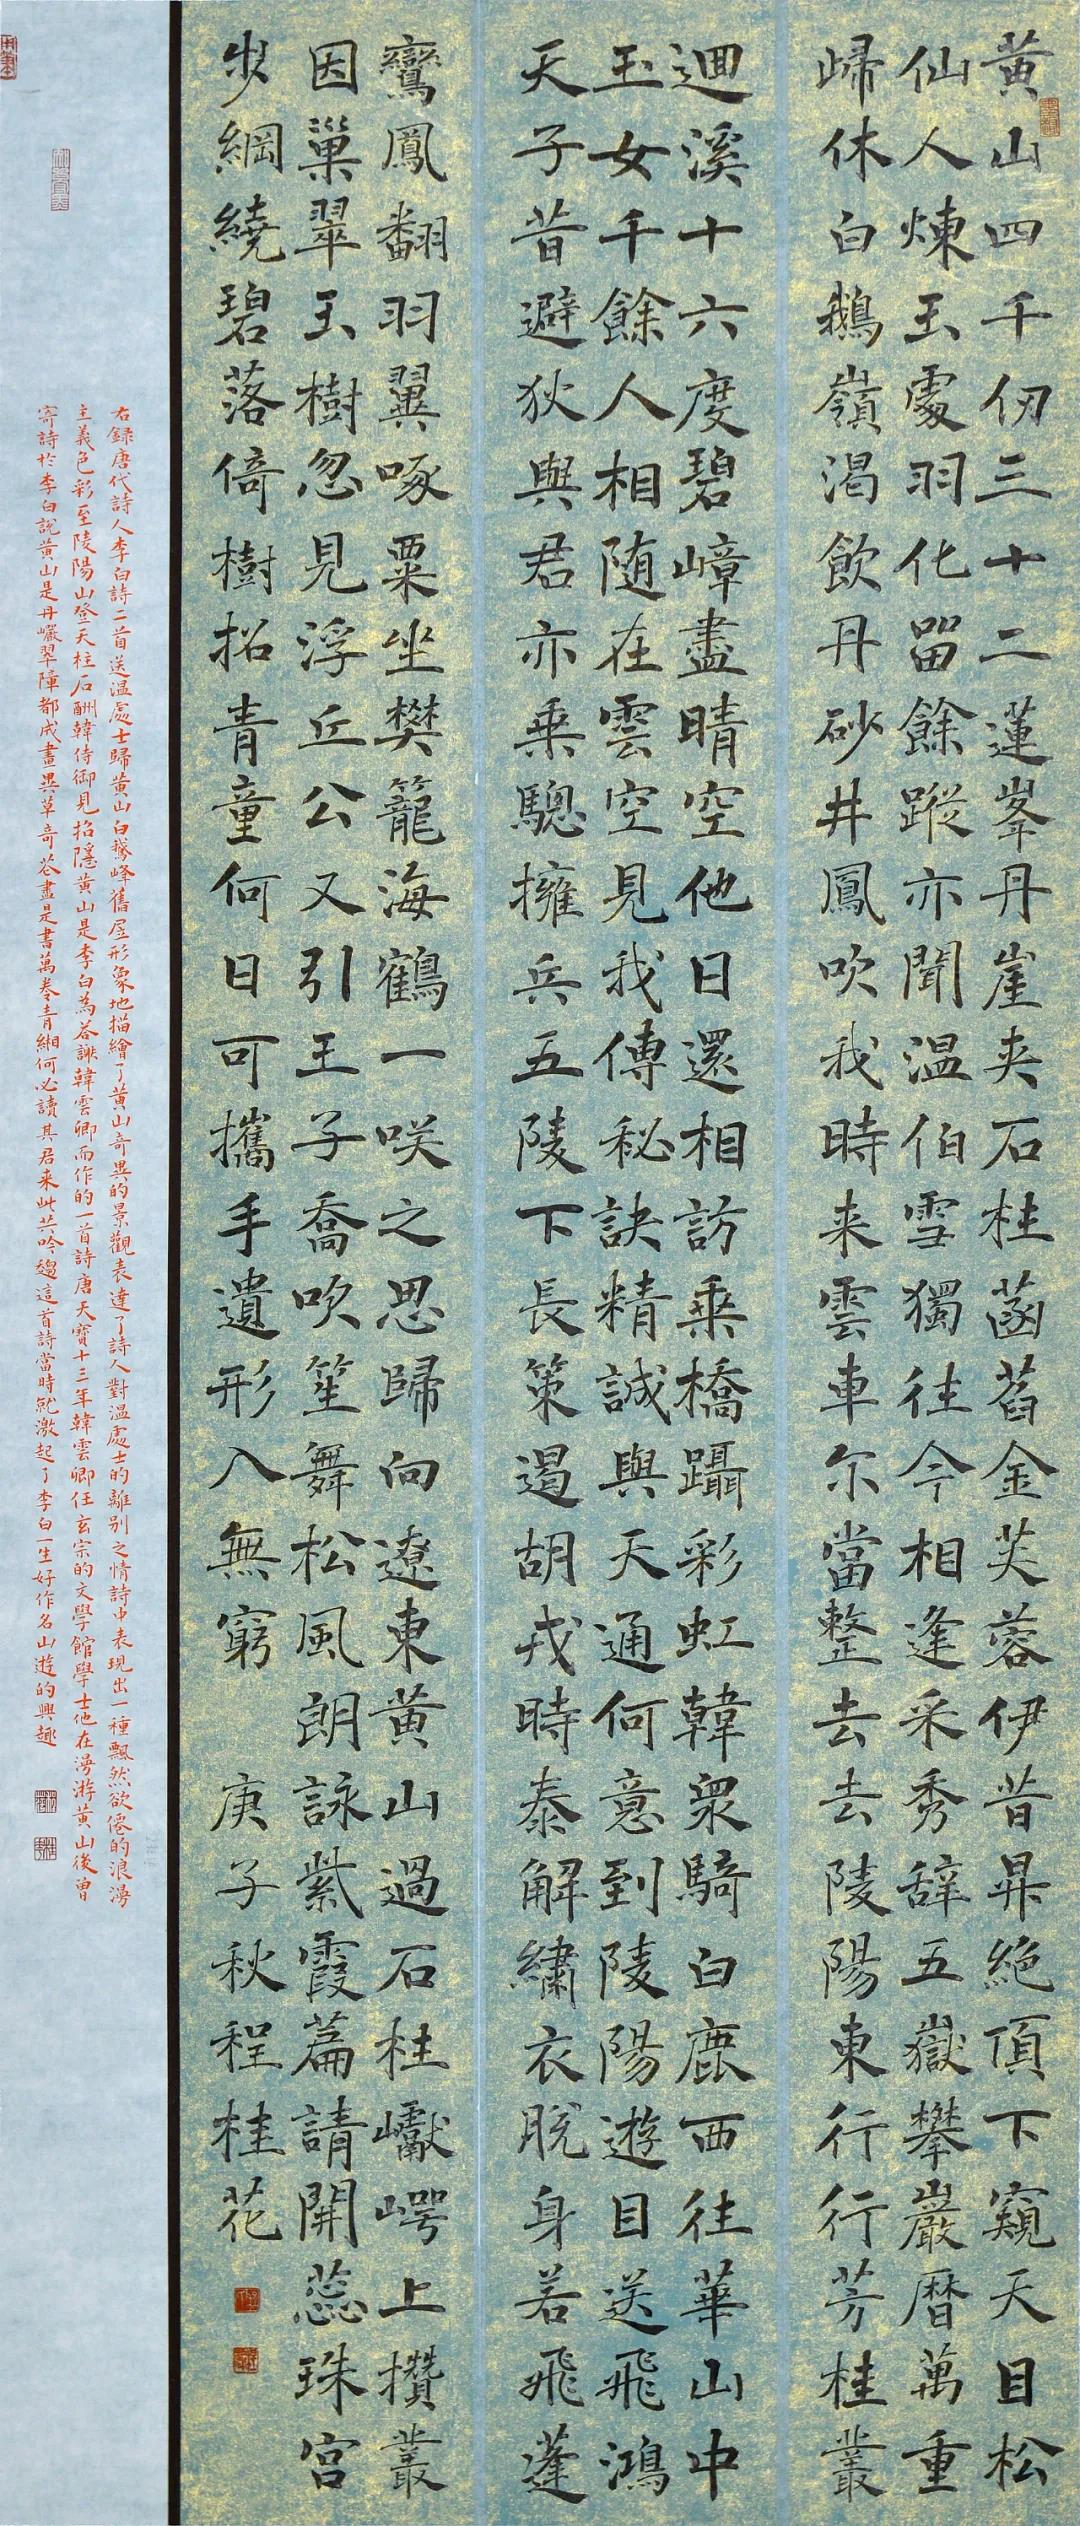 黄山四千仞三十二蓮峯丹崖夾石柱菡萏金芙蓉伊昔昇絶頂下窺天目松
仙人煉玉處羽化留餘蹤亦聞温伯雪獨往今相逢采秀辞五嶽攀巖曆萬重
歸休白鵝嶺渴飲丹砂井鳳吹我時来雲車尔當整去去陵陽東行行芳桂叢
迴溪十六度碧嶂盡晴空他日還相訪乘橋躡彩虹韓衆騎白鹿西往華山中
玉女千餘人相随在雲空見我傳秘訣精誠與天通何意到陵陽遊目送飛鴻
天子昔避狄與君亦乘驄擁兵五陵下長策遏胡戎時泰解繡衣脱身若飛蓬
鸞鳳翻羽翼啄粟坐樊籠海鶴一咲之思歸向遼東黄山過石柱巘崿上攢叢
因巢翠玉樹忽見浮丘公又引王子喬吹笙舞松風朗詠紫霞篇請開蕊珠宫
步綱繞碧落倚樹招青童何日可攜手遺形入無窮 庚子秋程桂花
右録唐代詩人李白詩二首送温處士歸黄山白鵝峰舊居形象地描繪了黄山奇異的景觀表達了詩人對温處士的離别之情詩中表現出一種飄然欲僊的浪漫
主義色彩至陵陽山登天柱石酬韓侍御見招隱黄山是李白為答謝韓雲卿而作的一首詩唐天寳十三年韓雲卿任玄宗的文學館學士他在漫游黄山後曾
寄詩於李白說黄山是丹巖翠障都成畫異草奇花盡是書萬卷青緗何必讀其君来此共吟趨這首詩當時就激起了李白一生好作名山遊的興趣